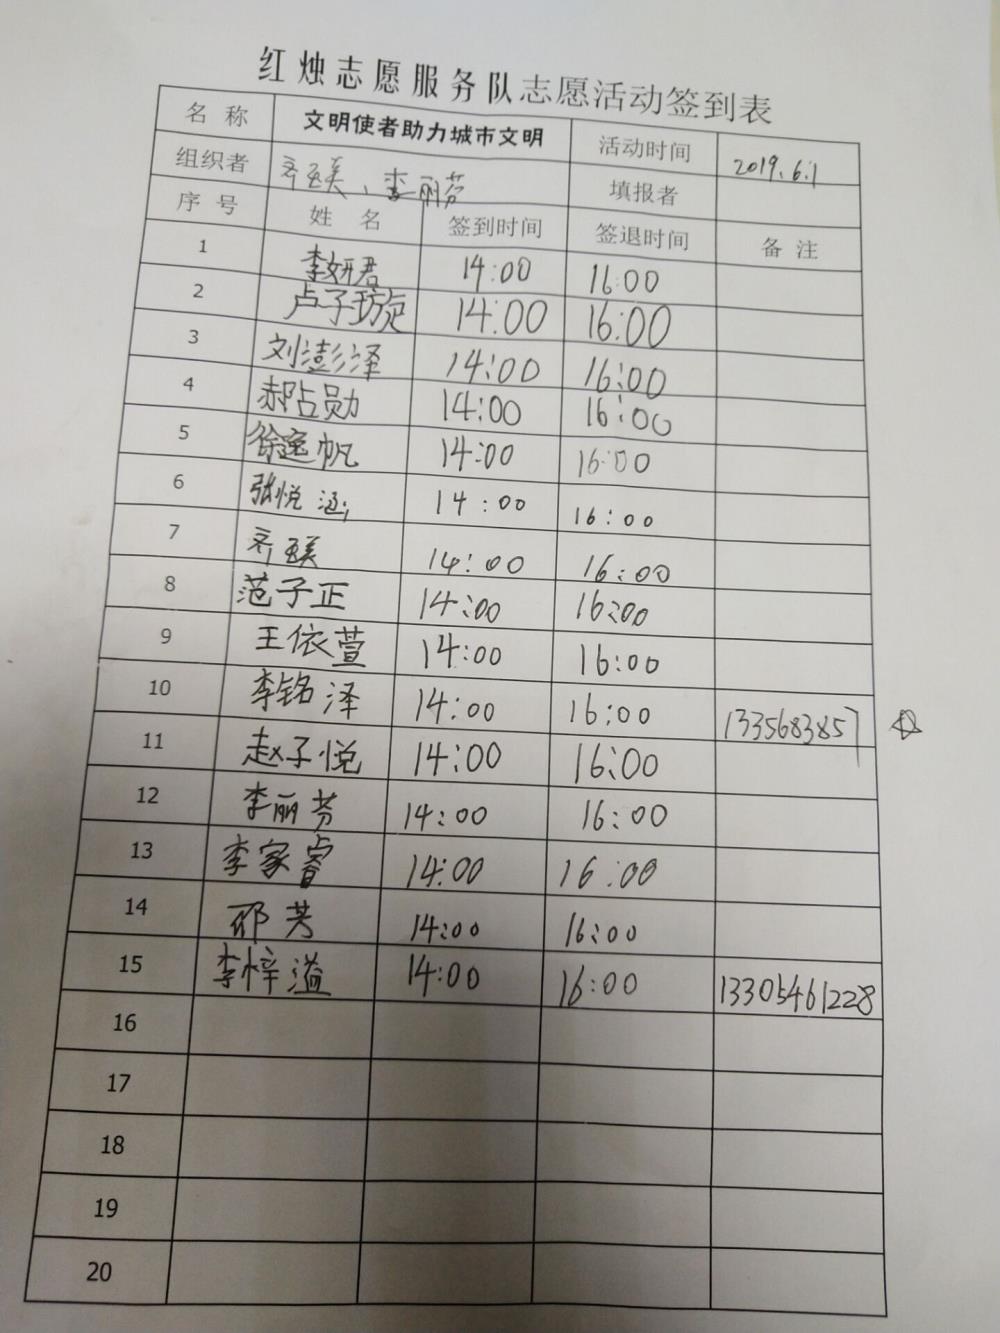 红烛志愿服务队志愿活动签到表
名 称 文明使者助力城市文明 活动时间 2019.6.1
组织者 齐亚美、李丽芬 填报者
序 号 姓 名 签到时间 签退时间 备 注
1 李妍君 14:00 16:00
2 卢子璇 14:00 16:00
3 刘澎泽 14:00 16:00
4 郝占勋 14:00 16:00
5 徐逸帆 14:00 16:00
6 张悦涵 14:00 16:00
7 齐亚美 14:00 16:00
8 范子正 14:00 16:00
9 王依萱 14:00 16:00
10 李铭泽 14:00 16:00 1335683857
11 赵子悦 14:00 16:00
12 李丽芬 14:00 16:00
13 李家睿 14:00 16:00
14 邵芳 14:00 16:00
15 李梓溢 14:00 16:00 13305461228
16
17
18
19
20